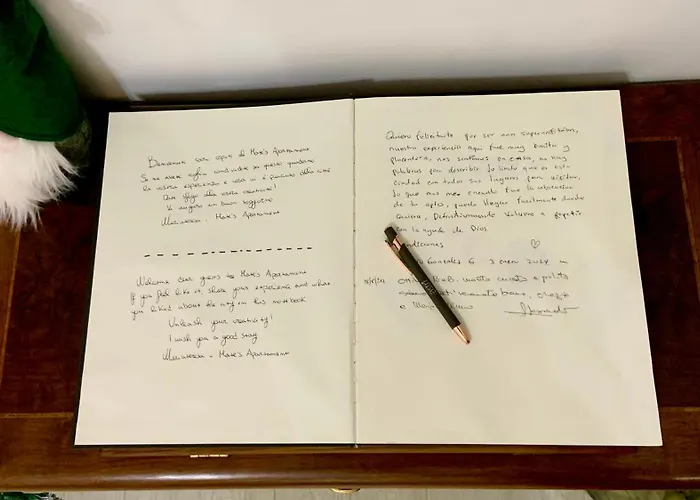 Benvenuti cari ospiti di Mare's Apartament
Se ne avete voglia condividete su questo quaderno
la vostra esperienza e cosa vi è piaciuto della città
Date sfogo alla vostra creatività!
Vi auguro un buon soggiorno
Mare's Apartament
Welcome dear guests to Mare's Apartament
If you feel like it, share your experience and what
you liked about the city on this notebook
Unleash your creativity!
I wish you a good stay
Mare's Apartament
Quiero felicitarte por ser una superanfitriona,
nuestra experiencia aquí fue muy bonita y
placentera, nos sentimos en casa, no hay
palabras para describir lo lindo que es esta
ciudad con todos sus lugares para visitar,
lo que más me encantó fue la ubicación
de tu apto, puedo llegar fácilmente donde
quiera, Definitivamente volveré a repetir
con la ayuda de Dios
Gonzalez G 3 enero 2024
B&B. molto curato e pulito